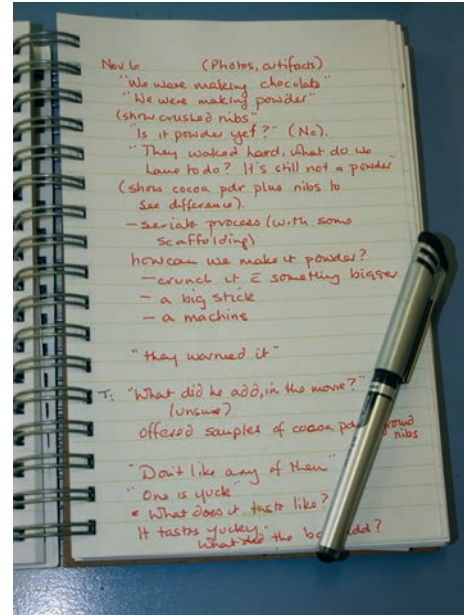 Nov 6 (Photos, artifacts)
"We were making chocolate"
"We were making powder"
(show crushed nibs"
"Is it powder yet?" (No).
"They waked hard, what do we
have to do? It's still not a powder"
(show cocoa pdr plus nibs to
see difference).
- seriate process (with some
scaffolding)
how can we make it powder?
- crunch it c̄ something bigger
- a big stick
- a machine
"they warmed it"
T: "What did he add, in the movie?"
(unsure)
offered samples of cocoa pdr, ground
nibs
"Don't like any of them"
"One is yuck"
• What does it taste like?
It tastes yucky.
What did the add?